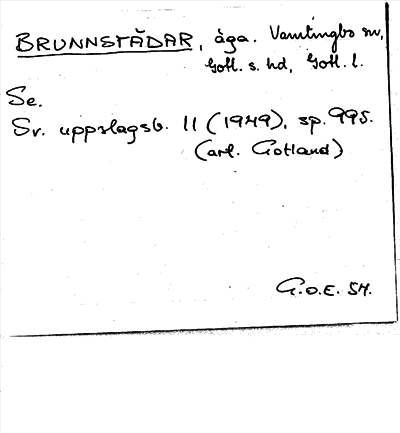 BRUNNSTÄDAR, äga. Vamlingbo sn,
Gotl. s. hd, Gotl. l.
Se.
Sv. uppslagsb. 11 (1949), sp. 995.
(art. Gotland)
G.O.E. 54.